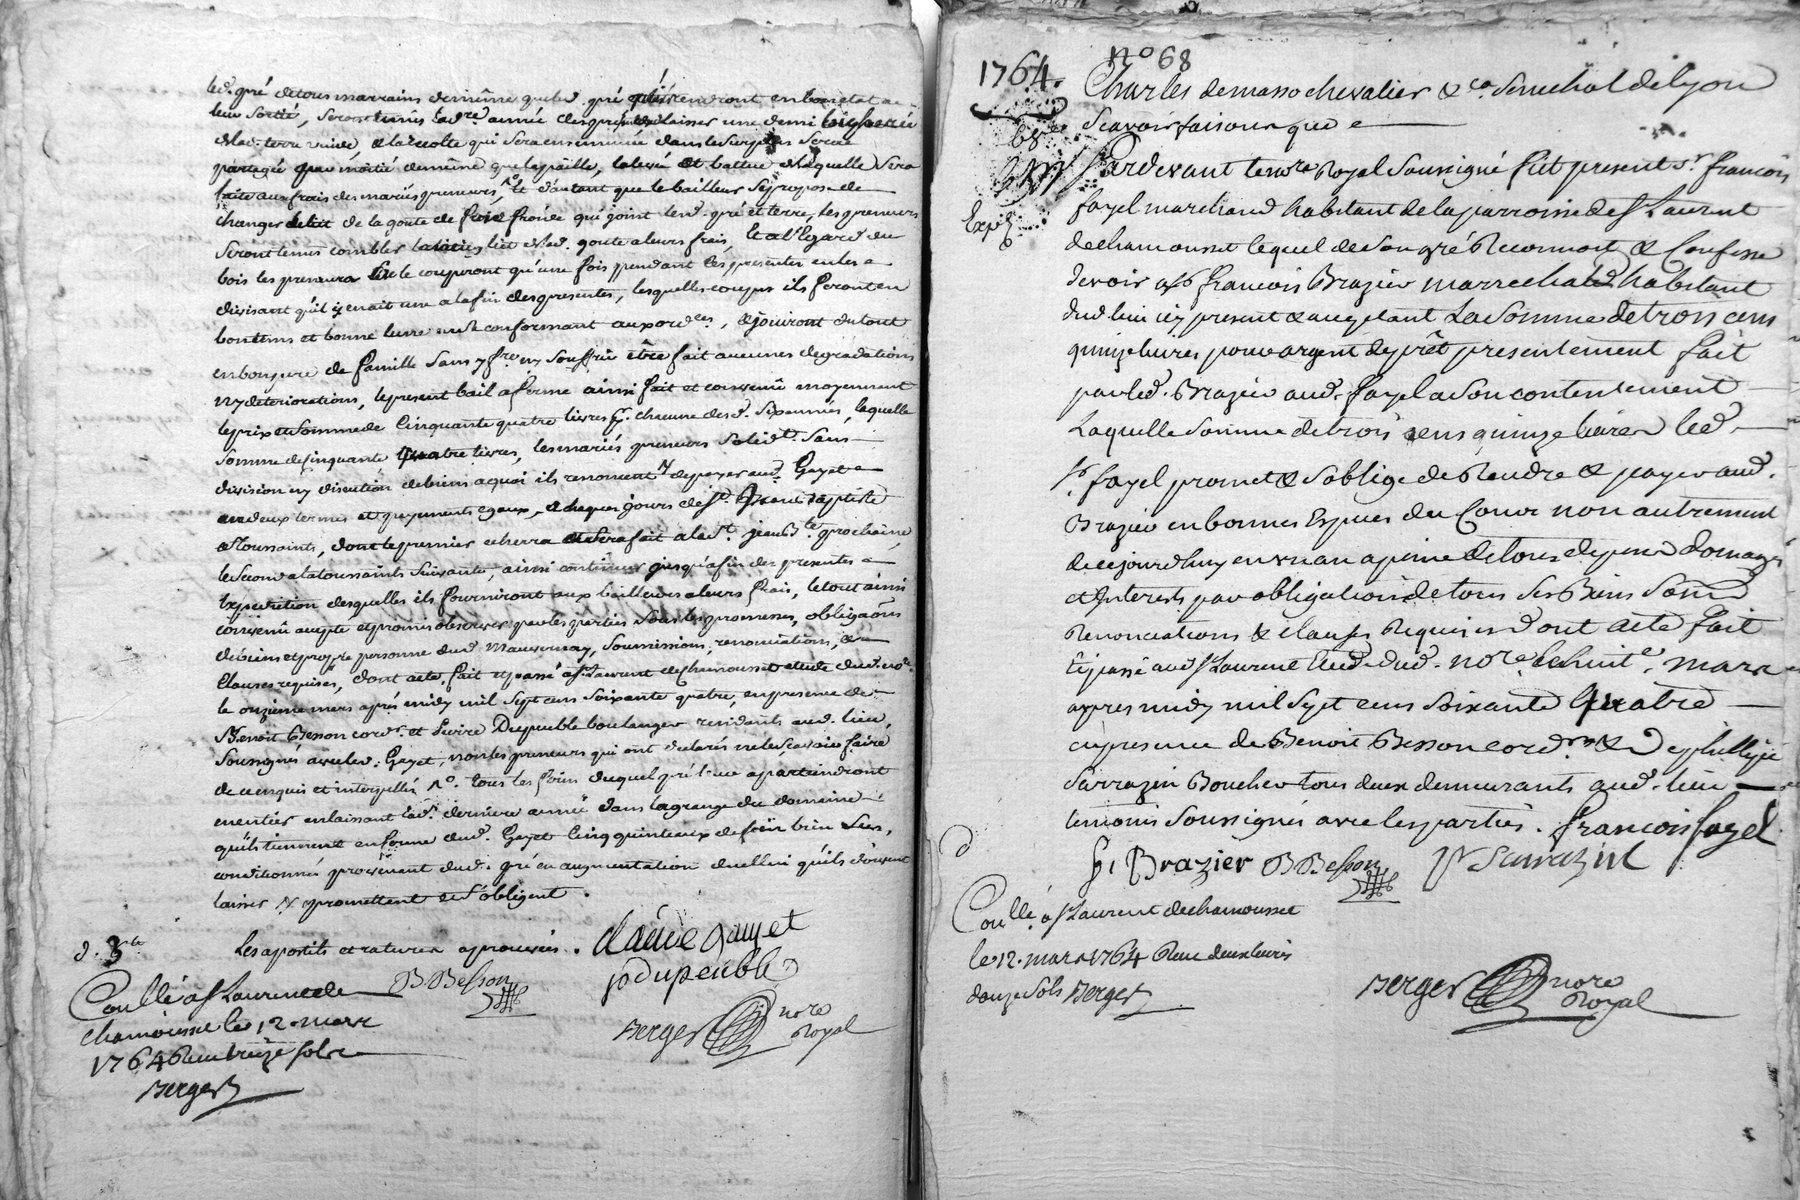 led. gré de tous marrains de même que led. gré qu'ils rendront en bon etat a
leur sortie, seront tenus lad.re année des presentes laisser une demi
de lad. terre vuide, & la recolte qui sera ensemencée dans le surplus sera
partagée par moitié de même que la paille, la levée et battue de laquelle sera
faite aux frais des mariés preneurs, et d'autant que le bailleur se propose de
changer le lit de la goute de qui joint lesd. gré et terre, les preneurs
seront tenus combler lit de lad. goute a leurs frais, Et a l'Egard du
bois les preneurs ne le couperont qu'une fois pendant les presentes en les
divisant qu'il y en ait une a la fin des presentes, lesquelles coupes ils feront en
bon tems et bonne lune en se conformant aux ord.ces, & jouiront du tout
en bon pere de famille sans y fre. ny souffrir être fait aucunes degradations
ny deteriorations, le present bail a ferme ainsi fait et convenu moyennant
le prix et somme de Cinquante quatre livres pr. chacune desd. six années, laquelle
somme de cinquante quatre livres, les mariés preneurs solid.t. sans
division ny discution de biens a quoi ils renoncent de payer aud. Gayet
en deux termes et payements egaux, a chaques jours de st Jean Baptiste
& Toussaints, dont le premier echerra et sera fait a lad. st. jean B.te prochaine,
le second a la toussaints suivante, ainsi continuer jusqu'a fin des presentes
Expedition desquelles ils fourniront aux bailleurs a leurs frais, le tout ainsi
convenu accepté et promis observer par les parties sous les promesses, obligaons
de biens et prop.re personne dud. Mauvernay, soumissions, renonciations, &
clauses requises, dont acte, fait et passé a st. Laurent de Chamousset etude dud. no.re
le onzieme mars après midy mil sept cens soixante quatre, en presence de
S. Benoit Besson cord.r et Pierre Dupeuble boulanger residants aud. lieu,
soussignés avec led. Gayet, non les preneurs qui ont declarés ne le scavoir faire
de ce enquis et interpellés. tous les foins duquel gré l'uc apartiendront
en entier en laissant lad. derniere année dans la grange du domaine
qu'ils tiennent en ferme dud. Gayet Cinq quinteaux de foin bien secs,
conditionnés provenant dud. gré en augmentation de celui qu'ils doivent
laisser & promettent et s'obligent.
Les apostils et ratures aprouvés. claude gayet
B Besson
p dupeuble
Berger no.re Royal
d. 3 te
Coullé a st Laurent de
chamousset le 12. mars
1764 Reçu treize sols
Berger
1764. No 68
Charles de masso chevalier & ca. Senechal de lyon
Scavoir faisons que
Expé
Pardevant le no.re Royal Soussigné fut present sr. françois
fayel marchand habitant de la parroisse de st Laurent
de chamousset lequel de son gré Reconnoit & Confesse
devoir a sr. françois Brazier marrechal habitant
dud. lieu icy present & acceptant La Somme de trois cens
quinze livres pour argent de prêt presentement fait
par led. Brazier aud. fayel a son contentement
Laquelle somme de trois cens quinze livres led.
sr. fayel promet & s'oblige de Rendre & payer aud.
Brazier en bonnes Espèces du Cours non autrement
de cejourd'huy en un an a peine de tous depens domages
et interets par obligation de tous ses Biens sous
Renonciations & clauses Requises dont acte fait
et passé aud. st Laurent Etude dud. no.re le huit.e mars
apres midy mil sept cens soixante quatre
en presence de Benoit Besson cord.r & de phillipe
Sarrazin Boucher tous deux demeurants aud. lieu
temoins soussignés avec les parties. francois fayel
f. Brazier B Besson ph Sarrazin
Coullé a st Laurent de chamousset
le 12. mars 1764 Reçu deux livres
douze sols Berger
Berger no.re Royal